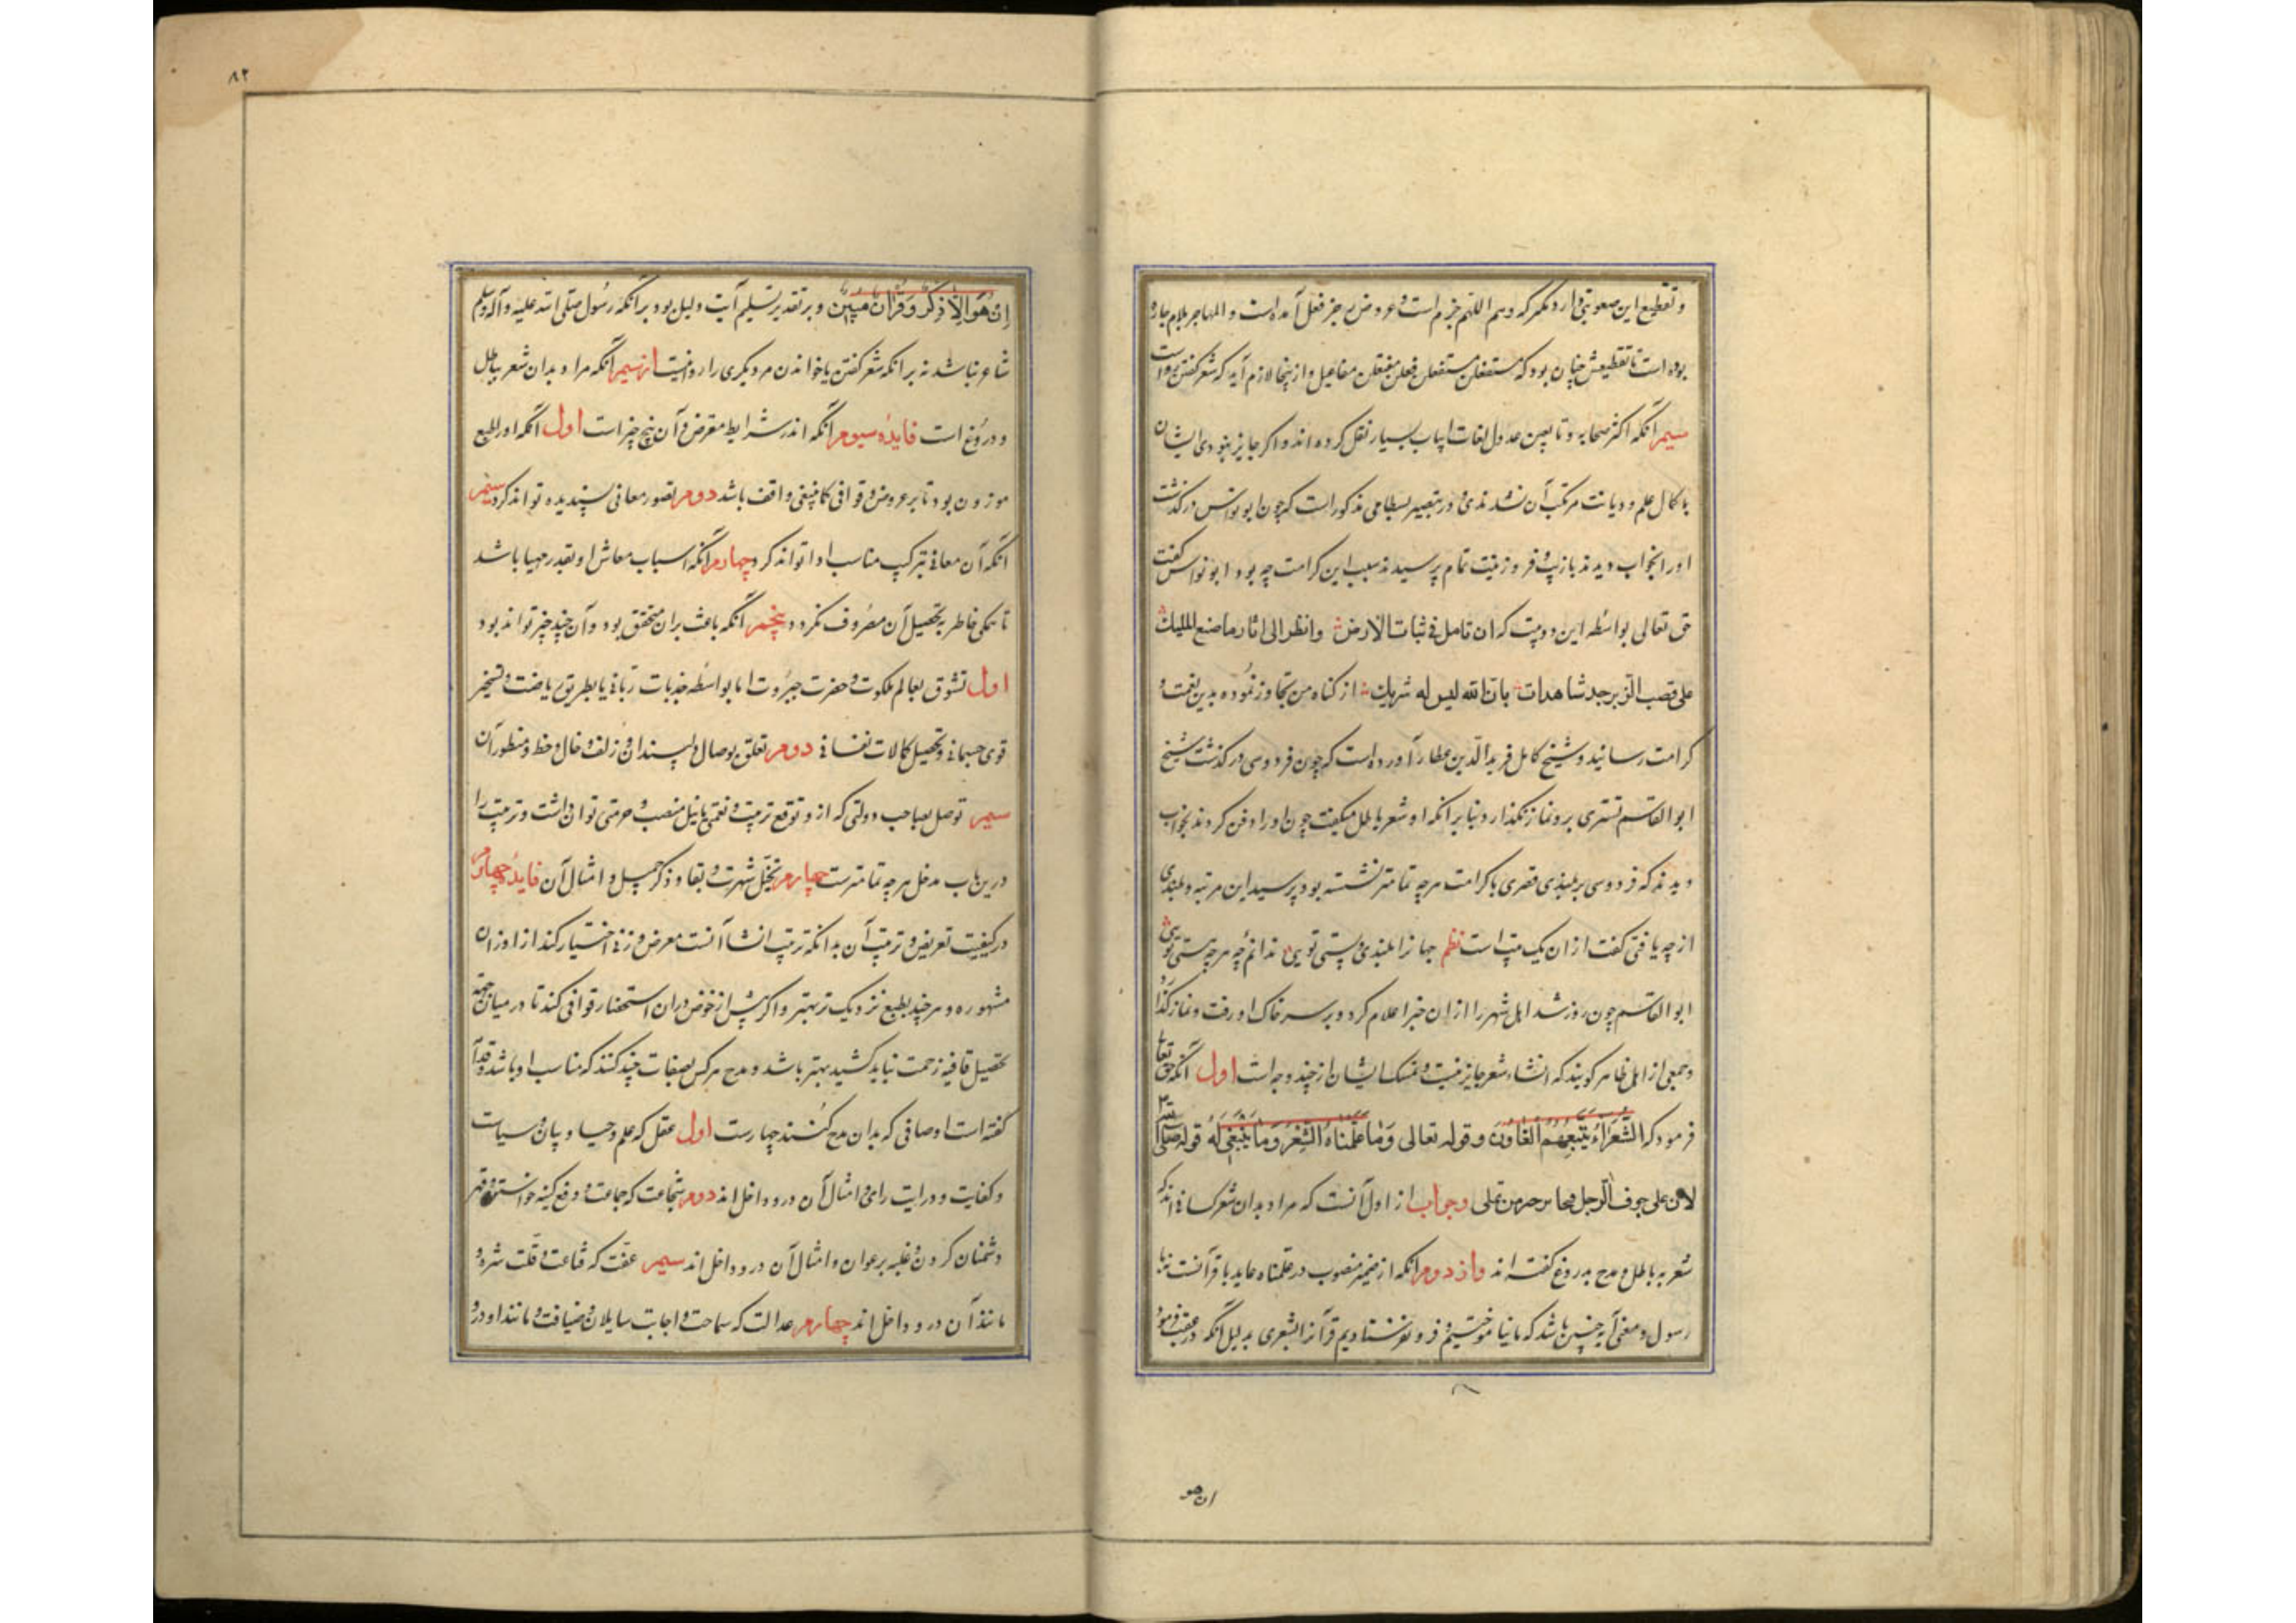 و تقطیع این صعوبتی دارد مگر که وسم اللهم خرم است و عروض بر جزء فعل آمده است و المهاجر بلام جاره
بوده است تا تقطیعش چنان بود که مستفعلن مستفعلن فعلن مفتعلن مفاعیل و از ینجا لازم آید که شعر گفتن رواست
سیم آنکه اکثر صحابه و تابعین عدول لغات ابیات بسیار نقل کرده اند و اگر جایز نبودی ایشان
با کمال علم و دیانت مرتکب آن نشدندی و در بسطامی مذکور است که چون ابو نواس درگذشت
او را بخواب دیدند بازیب و فر و زینت تمام پرسیدند سبب این کرامت چه بود ابو نواس گفت
حق تعالی بواسطه این دو بیت که ان تامل فی نبات الارض وانظر الی اثار ما صنع الملیک
علی قصب الزبرجد شاهدات بان الله لیس له شریک از گناه من تجاوز نموده بدین نعمت و
کرامت رسانید و شیخ کامل فرید الدین عطار آورده است که چون فردوسی درگذشت شیخ
ابو القاسم تستری برو نماز نگذارد بنا بر آنکه او شعر باطل میگفت چون او را دفن کردند بخواب
دیدند که فردوسی بر بلندی قصری با کرامت هر چه تمامتر نشسته بود پرسید این مرتبه و بلندی
از چه یافتی گفت از ان یک بیت است نظم جهانرا بلندی و پستی تویی ندانم چه هر چه هستی تویی
ابو القاسم چون روز شد اهل شهر را از ان خبر اعلام کرد و بر سر خاک او رفت و نماز گذارد
و جمعی از اهل ظاهر گویند که انشاء شعر جایز نیست و تمسک ایشان از چند وجه است اول آنکه حق تعالی
فرمود که الشعراء یتبعهم الغاون و قوله تعالی وما علمناه الشعر وما ینبغی له قوله صلی
لان علی جوف الرجل قیحا من علی وجواب از اول آنست که مراد بدان شعر کسانی اند که
شعر به باطل و مدح بدروغ گفته اند واز دوم آنکه از ضمیر منصوب در علمناه عاید با قرآنست نه با
رسول و معنی آیه چنین باشد که ما نیاموختیم و فرو نفرستادیم قرآنرا بشعری بدلیل آنکه در عقب فرمود
ان هو
۸۲
ان هو الا ذکر و قرآن مبین و بر تقدیر تسلیم آیت دلیل بود بر آنکه رسول صلی الله علیه و آله و سلم
شاعر نباشد نه بر آنکه شعر گفتن یا خواندن مر دیگری را روا نیست از سیم آنکه مراد بدان شعر باطل
و دروغ است فایده سیوم آنکه اندر شرایط معرض و آن پنج چیز است اول آنکه او را طبع
موزون بود تا بر عروض و قوافی کما ینبغی واقف باشد دوم تصور معانی پسندیده تواند کرد سیم
آنکه آن معانی بترکیب مناسب ادا تواند کرد چهارم آنکه اسباب معاش او بقدر مهیا باشد
تا بکلی خاطر به تحصیل آن مصروف نگردد پنجم آنکه باعث بر ان متحقق بود و آن چند چیز تواند بود
اول تشوق بعالم ملکوت و حضرت جبروت اما بواسطه جذبات ربانی یا بطریق ریاضت و تسخیر
قوی جسمانی و تحصیل کمالات نفسانی دوم تعلق بوصال دلپسندان و زلف و خال و خط و منظور آن
سیم توصل بصاحب دولتی که از و توقع تربیت و نعمتی یا نیل منصب و حرمتی توان داشت و تربیت را
درین باب مدخل هر چه تمامترست چهارم تخیل شهرت و بقا و ذکر جمیل و امثال آن فایده چهارم
در کیفیت تعریض و ترتیب آن بدانکه ترتیب انشا آنست معرض وزنی اختیار کند از اوزان
مشهوره و هر چند بطبع نزدیک تر بهتر و اگر پیش از خوض در ان استحضار قوافی کند تا در میان جهة
تحصیل قافیه زحمت نباید کشید بهتر باشد و مدح هر کس بصفات چند کنند که مناسب او باشد و قدما
گفته است اوصافی که بدان مدح کنند چهارست اول عقل که علم و حیا و بیان و سیاست
و کفایت و درایت رای و امثال آن درو داخل اند دوم شجاعت که حمایت و دفع کینه خواستن و قهر
دشمنان کردن و غلبه بر عوان و امثال آن درو داخل اند سیم عفت که قناعت و قلت شره و
مانند آن درو داخل اند چهارم عدالت که سماحت و اجابت سایلان و ضیافت و مانند او درو